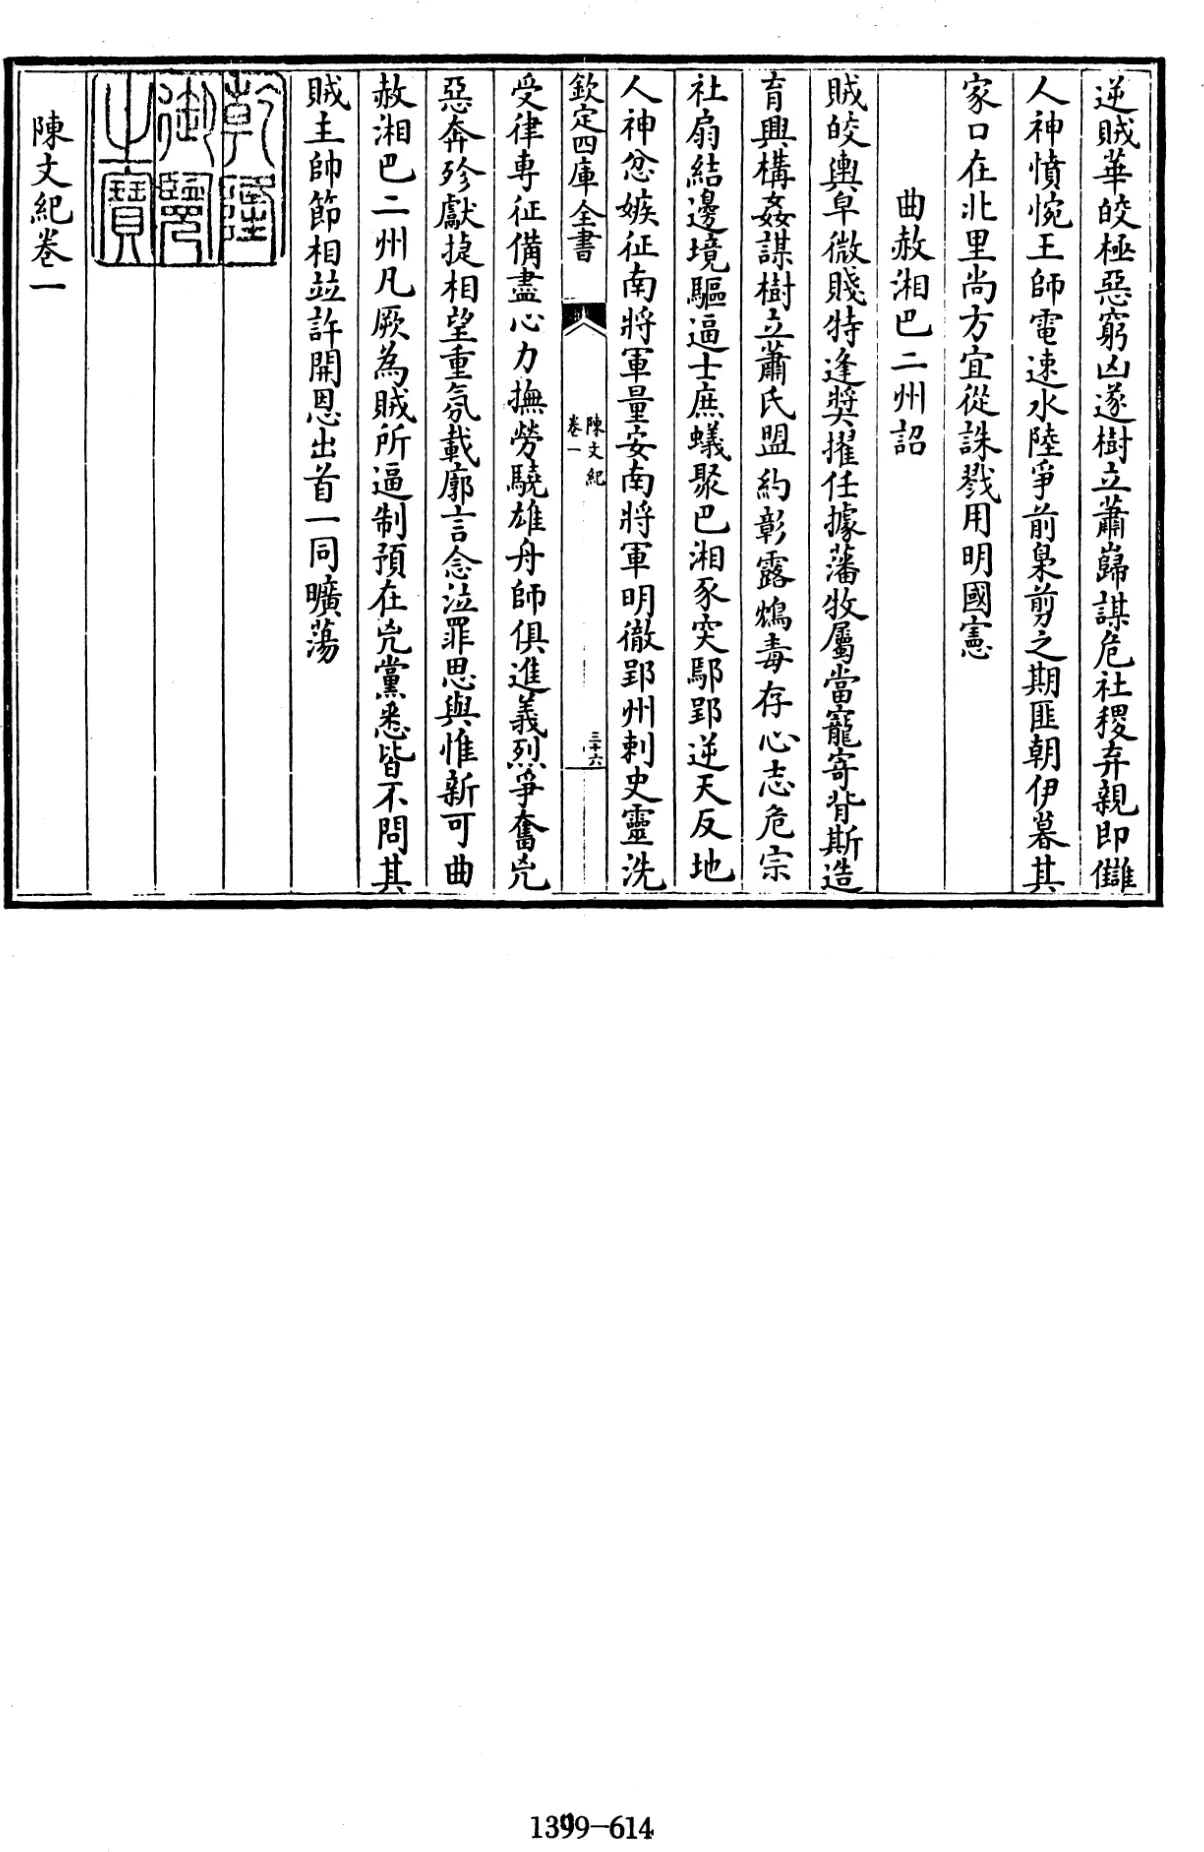 逆賊華皎極惡窮凶遂樹立蕭巋謀危社稷弃親即讎
人神憤惋王師電速水陸爭前梟剪之期匪朝伊暮其
家口在北里尚方宜從誅戮用明國憲
曲赦湘巴二州詔
賊皎輿皁微賤特逢奨擢任據藩牧屬當寵寄背斯造
育興構姦謀樹立蕭氏盟約彰露鴆毒存心志危宗
社扇結邊境驅逼士庶蟻聚巴湘豕突鄢郢逆天反地
人神忿嫉征南將軍量安南將軍明徹郢州刺史靈洗
欽定四庫全書
陳文紀
卷一
三十六
受律專征備盡心力撫勞驍雄舟師俱進義烈爭奮兇
惡奔殄獻捷相望重氛載廓言念泣罪思與惟新可曲
赦湘巴二州凡厥為賊所逼制預在兇黨悉皆不問其
賊主帥節相竝許開恩出首一同曠蕩
乾隆
御覽
之寶
陳文紀卷一
1399-614